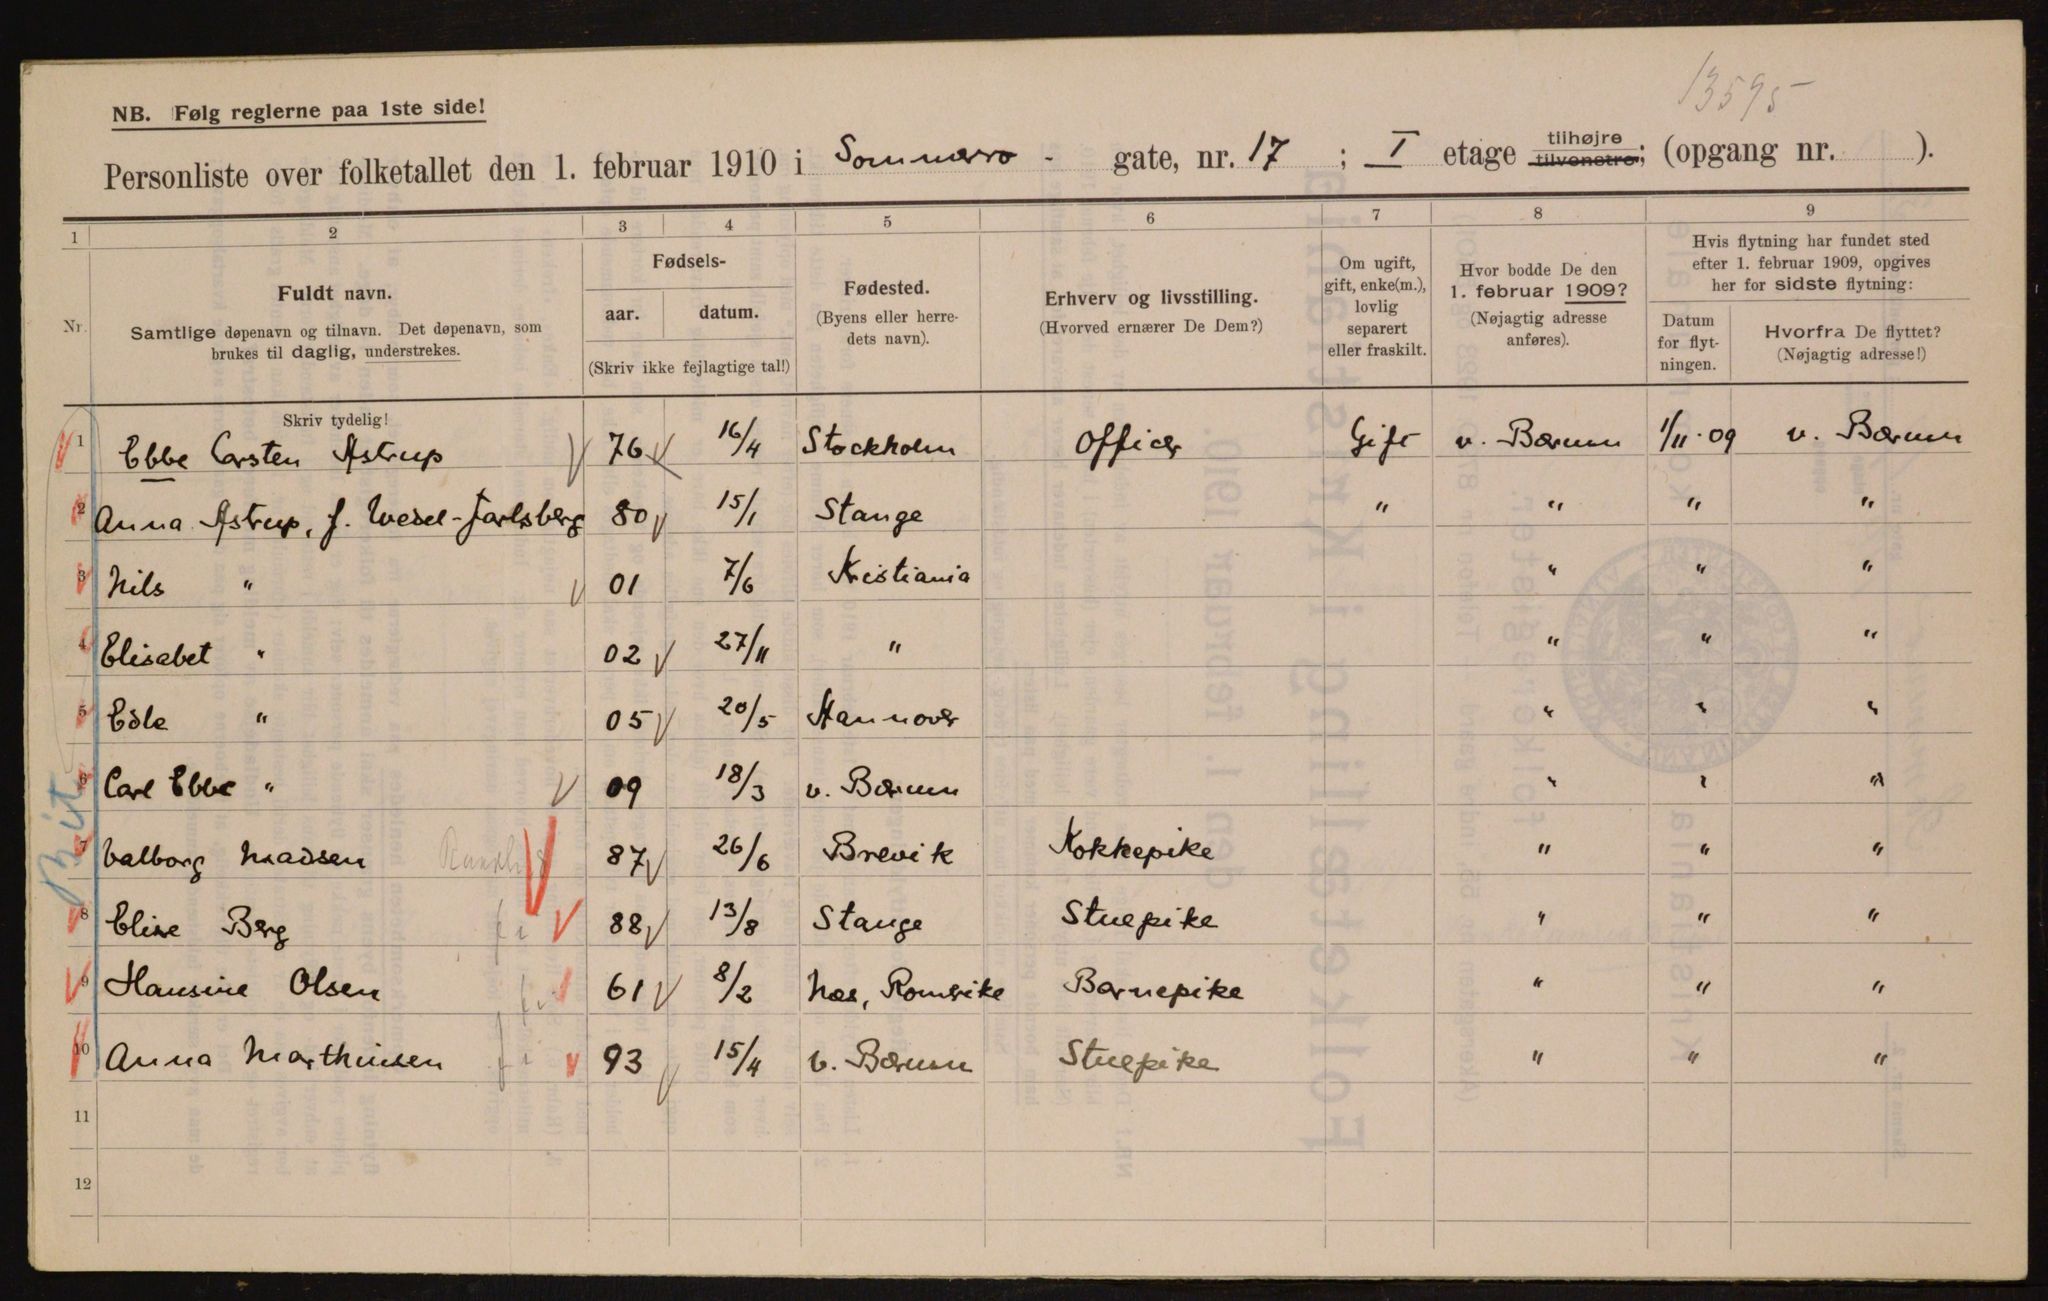 13595
NB. Følg reglerne paa 1ste side!
Personliste over folketallet den 1. februar 1910 i Sommerro - gate, nr. 17 ; I etage tilhøjre tilvenstre; (opgang nr. ).
1 2 3 4 5 6 7 8 9
Nr.
Fuldt navn.
Samtlige døpenavn og tilnavn. Det døpenavn, som
brukes til daglig, understrekes.
Fødsels-
aar. datum.
(Skriv ikke fejlagtige tal!)
Fødested.
(Byens eller herre-
dets navn).
Erhverv og livsstilling.
(Hvorved ernærer De Dem?)
Om ugift,
gift, enke(m.),
lovlig
separert
eller fraskilt.
Hvor bodde De den
1. februar 1909?
(Nøjagtig adresse
anføres).
Hvis flytning har fundet sted
efter 1. februar 1909, opgives
her for sidste flytning:
Datum
for flyt-
ningen.
Hvorfra De flyttet?
(Nøjagtig adresse!)
Skriv tydelig!
1 Ebbe Carsten Astrup 76 16/4 Stockholm Officer Gift v. Bærum 1/11·09 v. Bærum
2 Anna Astrup, f. Wedel-Jarlsberg 80 15/1 Stange " " " "
3 Nils " 01 7/6 Kristiania " " "
4 Elisabet " 02 27/11 " " " "
5 Edle " 05 20/5 Hannover " " "
6 Carl Ebbe " 09 18/3 v. Bærum " " "
7 Valborg Madsen 87 26/6 Brevik Kokkepike " " "
8 Elise Berg 88 13/8 Stange Stuepike " " "
9 Hansine Olsen 61 8/2 Næs, Romerike Barnepike " " "
10 Anna Marthinsen 93 15/4 v. Bærum Stuepike " " "
11
12